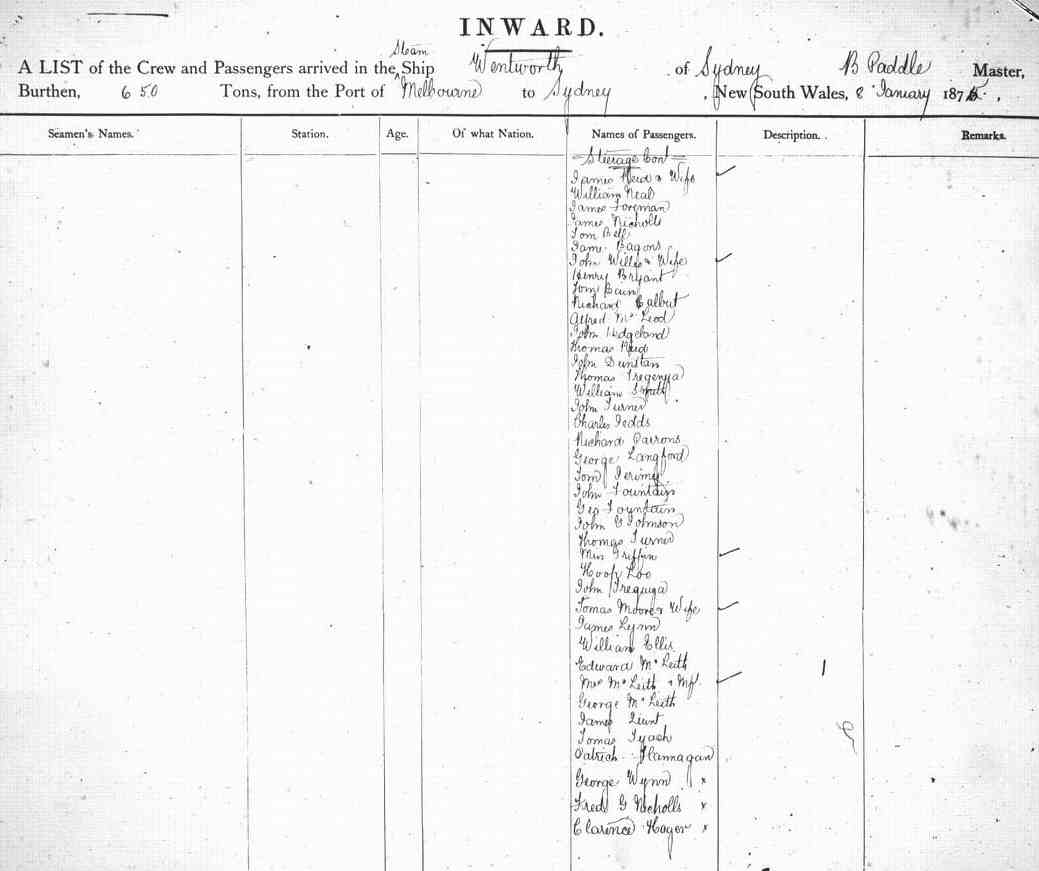 INWARD.
Steam
A LIST of the Crew and Passengers arrived in the Ship Wentworth of Sydney B Paddle Master,
Burthen, 650 Tons, from the Port of Melbourne to Sydney , New South Wales, 8 January 187
Seamen's Names. Station. Age. Of what Nation. Names of Passengers. Description. Remarks.
Stierage Con
James Reid & Wife
William Neal
James Foreman
James Nicholls
Tom Bell
Jame Bagons
John Willis & Wife
Henry Bryant
Tom Bain
Richard
Alfred McLeod
John Hedgeland
Thomas Reid
John Dunstan
Thomas Tregenya
William Smith
John Turner
Charles Jedds
Richard Parrons
George Langford
Tom Jerimy
John Fountain
Geo Fountain
John G Johnson
Thomas Turner
Griffin
Loo
John
Tomas Moore & Wife
James Lynn
William Ellis
Edward McLeith
Mrs McLeith &
George McLeith
James
Tomas
Patrick Flannagan
George Wynn x
Fred G Nicholls x
Clarence Hayer x